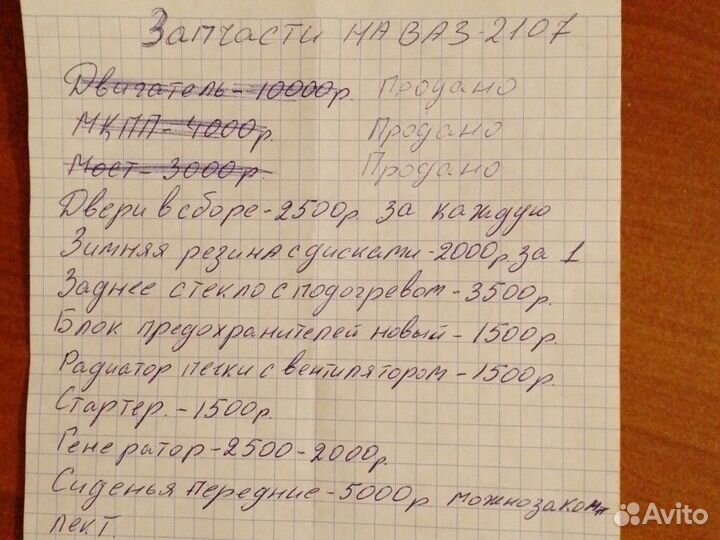 Запчасти на ВАЗ-2107
Двигатель - 10000р. Продано
МКПП - 4000р. Продано
Мост - 3000р. Продано
Двери в сборе - 2500р за каждую
Зимняя резина с дисками - 2000р за 1
Заднее стекло с подогревом - 3500р.
Блок предохранителей новый - 1500р.
Радиатор печки с вентилятором - 1500р.
Стартер. - 1500р.
Генератор - 2500 - 2000р.
Сиденья передние - 5000р можно за комп
лект.
Avito